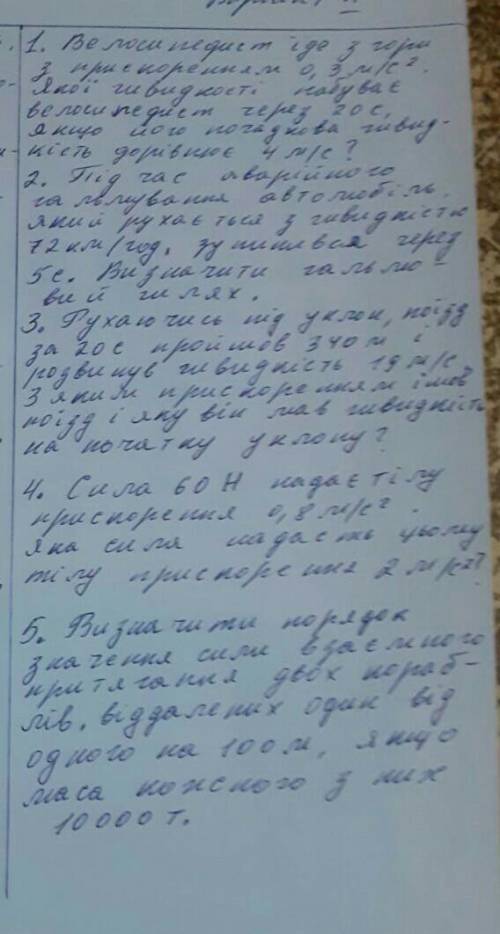 Варіант ІІ
1. Велосипедист їде з гори
з прискоренням 0,3 м/с².
Якої швидкості набуває
велосипедист через 20 с,
якщо його початкова швид-
кість дорівнює 4 м/с?
2. Під час аварійного
гальмування автомобіль,
який рухається з швидкістю
72 км/год, зупинився через
5 с. Визначити гальмо-
вий шлях.
3. Рухаючись під уклон, поїзд
за 20 с пройшов 340 м і
розвинув швидкість 19 м/с
З яким прискоренням їхав
поїзд і яку він мав швидкість
на початку уклону?
4. Сила 60 Н надає тілу
прискорення 0,8 м/с².
Яка сила надасть цьому
тілу прискорення 2 м/с²?
5. Визначити порядок
значення сили взаємного
притягання двох кораб-
лів, віддалених один від
одного на 100 м, якщо
маса кожного з них
10000 т.